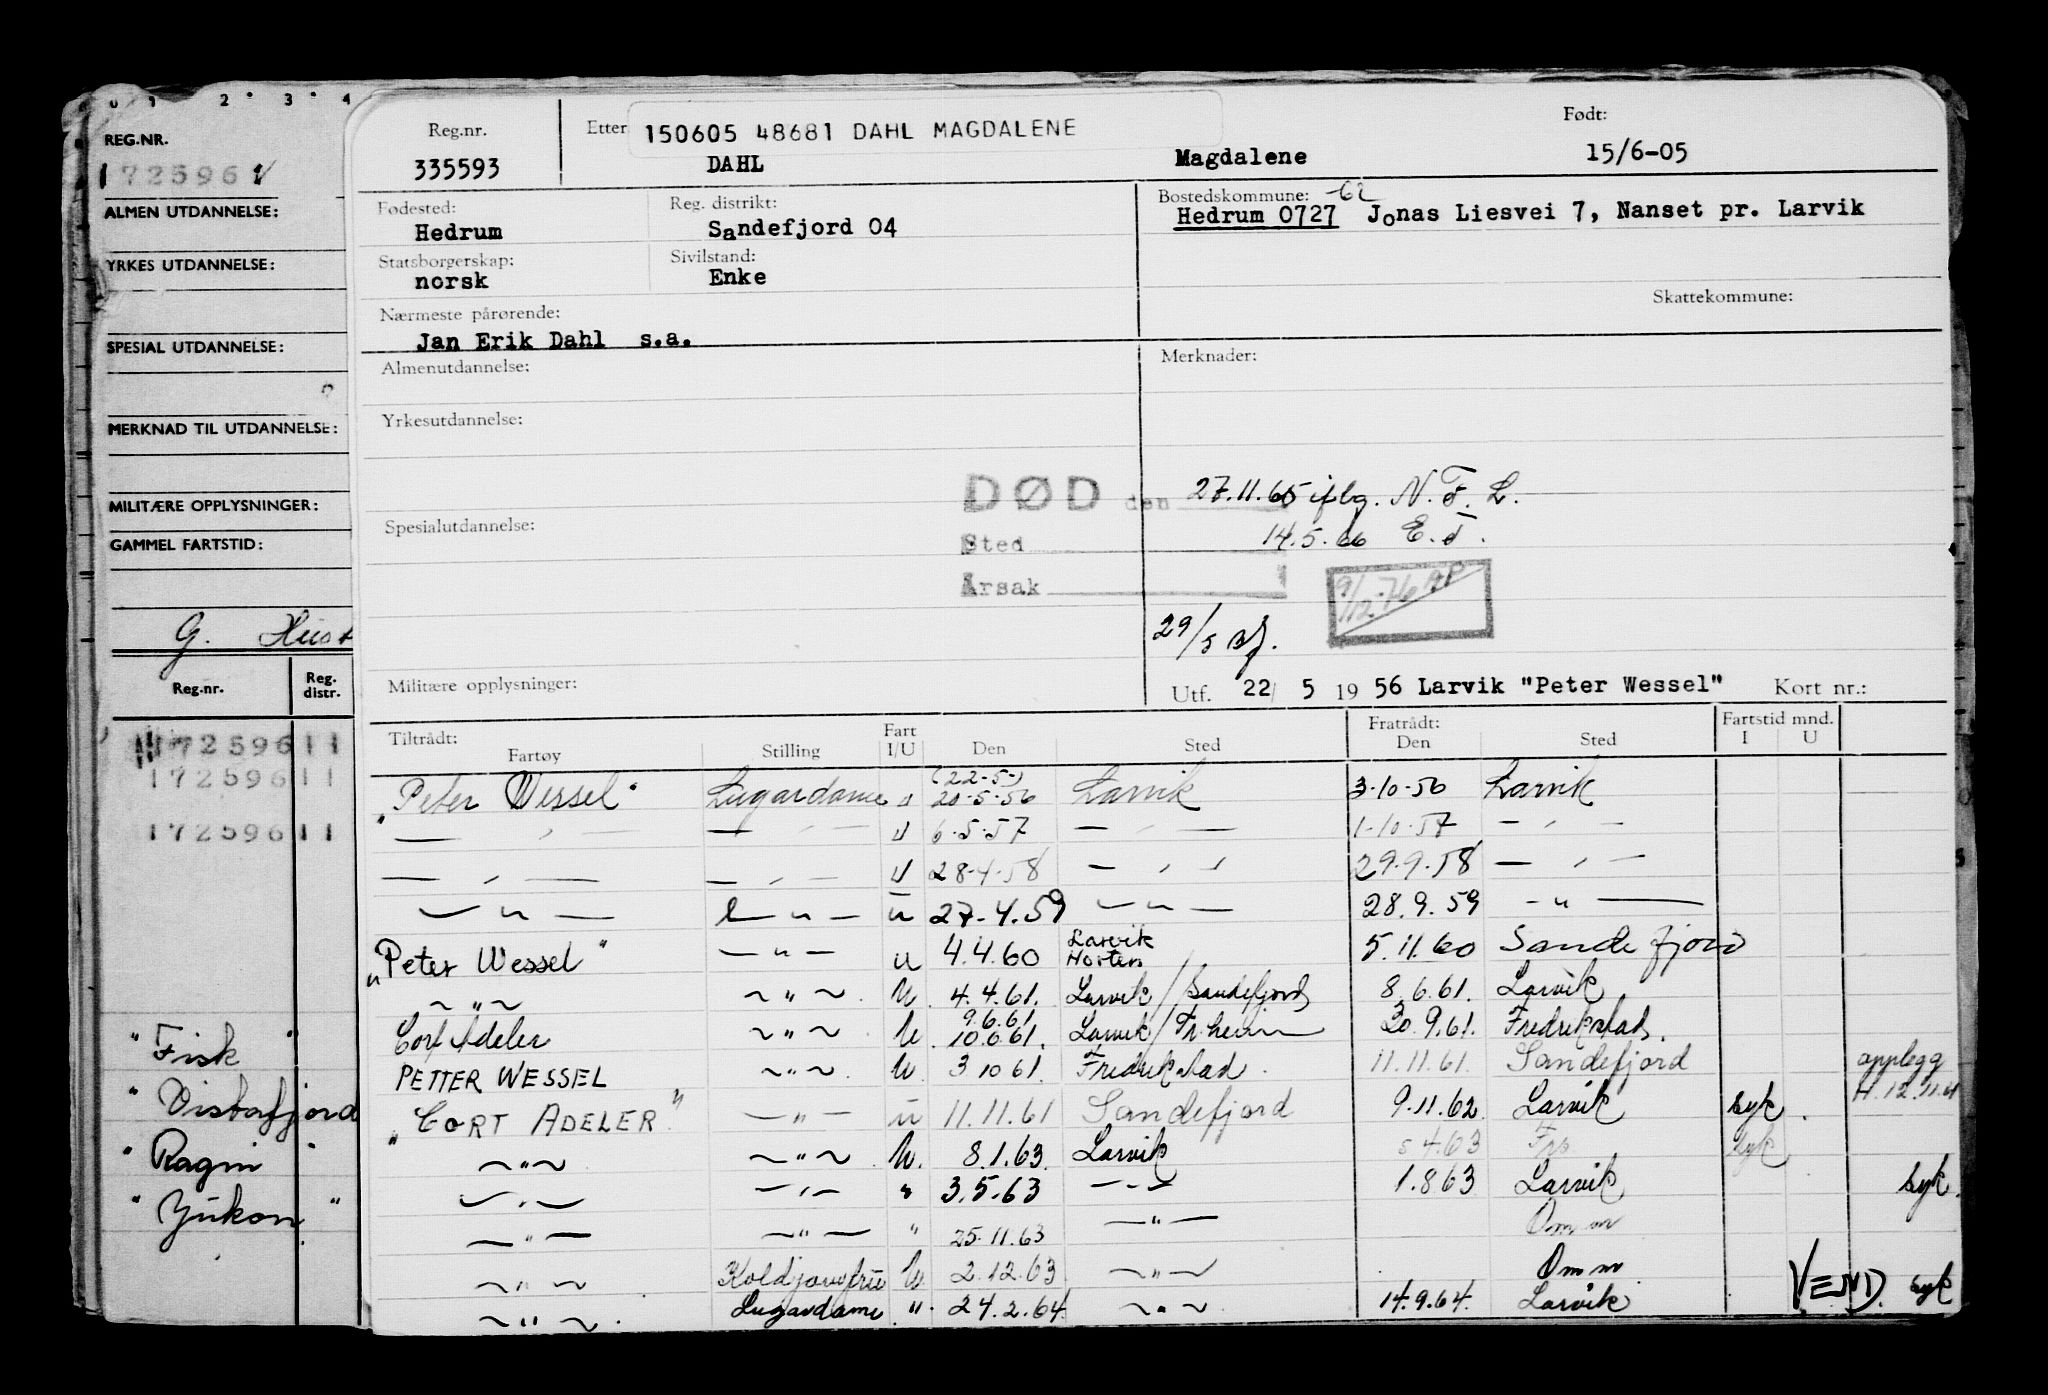 0 1 2 3 4
REG.NR.
1725961
ALMEN UTDANNELSE:
YRKES UTDANNELSE:
SPESIAL UTDANNELSE:
MERKNAD TIL UTDANNELSE:
MILITÆRE OPPLYSNINGER:
GAMMEL FARTSTID:
G.
Reg.nr. Reg. distr.
1725961 1
1725961 1
1725961 1
"Fisk"
"Ragni"
"Yukon"
Reg.nr. Etter 150605 48681 DAHL MAGDALENE Født:
335593 DAHL Magdalene 15/6-05
Fødested: Reg. distrikt: Bostedskommune: -62
Hedrum Sandefjord 04 Hedrum 0727 Jonas Liesvei 7, Nanset pr. Larvik
Statsborgerskap: Sivilstand:
norsk Enke
Skattekommune:
Nærmeste pårørende:
Jan Erik Dahl s.a.
Almenutdannelse: Merknader:
Yrkesutdannelse:
DØD den 27.11.65 iflg. N.T.L.
Spesialutdannelse:
Sted 14.5.66 E.T.
Årsak
9/12-76
29/5
Militære opplysninger: Utf. 22/ 5 19 56 Larvik "Peter Wessel" Kort nr.:
Tiltrådt: Fart Fratrådt: Fartstid mnd.
Fartøy Stilling I/U Den Sted Den Sted I U
(22-5-)
"Peter Wessel" Lugardame U 20-5-56 Larvik 3-10-56 Larvik
— " — — " — U 6-5-57 — " — 1-10-57 — " —
— " — — " — U 28-4-58 — " — 29.9.58 — " —
— " — — " — u 27-4.59 — " — 28.9.59 — " —
"Peter Wessel" — " — u 4.4.60 Larvik Horten 5.11.60 Sandefjord
— " — — " — U. 4.4.61. Larvik/Sandefjord 8.6.61. Larvik
9.6.61
Cort Adeler — " — U. 10.6.61. Larvik/Fr.havn 30.9.61. Fredrikstad.
PETTER WESSEL — " — U. 3 10 61. Fredrikstad. 11.11.61. Sandefjord opplegg
"CORT ADELER" — " — u 11.11.61 Sandefjord 9.11.62. Larvik syk. H.12.11.61
— " — — " — U. 8.1.63. Larvik 5 4.63 syk
— " — — " — " 3.5.63 — " — 1.8 63 Larvik syk.
— " — — " — " 25.11.63 — " — Omm
— " — Koldjomfru U. 2.12.63 — " — Omm
— " — Lugardame " 24.2.64. — " — 14.9.64. Larvik VEND. syk